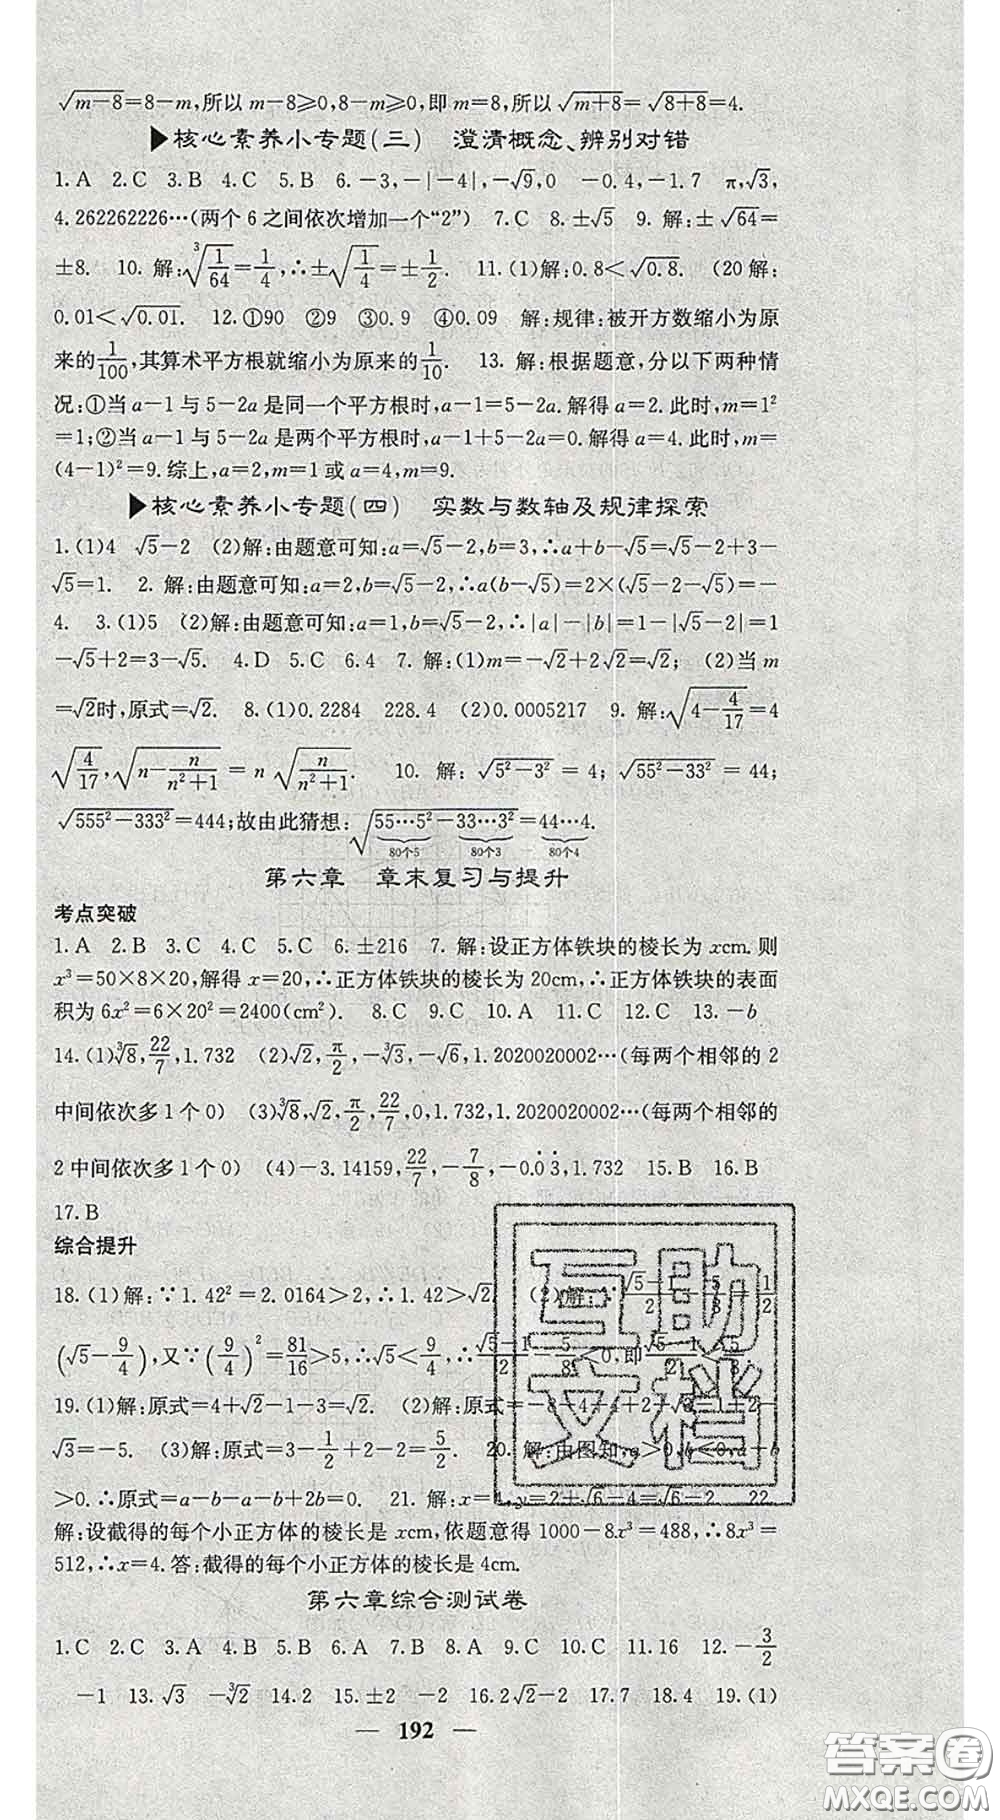 √(m−8)=8−m,所以 m−8⩾0,8−m⩾0,即 m=8,所以 √(m+8)=√(8+8)=4.
▶核心素养小专题(三)　澄清概念、辨别对错
1.A　2.C　3.B　4.C　5.B　6.−3,−|−4|,−√9,0　−0.4,−1.7　π,√3,
4.262262226…(两个 6 之间依次增加一个“2”)　7.C　8.±√5　9.解:±√64=
±8.　10.解:∛(1/64)=1/4,∴±√(1/4)=±1/2.　11.(1)解:0.8<√0.8.　(20解:
0.01<√0.01.　12.①90　②9　③0.9　④0.09　解:规律:被开方数缩小为原
来的1/100,其算术平方根就缩小为原来的1/10.　13.解:根据题意,分以下两种情
况:①当 a−1 与 5−2a 是同一个平方根时,a−1=5−2a.解得 a=2.此时,m=1²
=1;②当 a−1 与 5−2a 是两个平方根时,a−1+5−2a=0.解得 a=4.此时,m=
(4−1)²=9.综上,a=2,m=1 或 a=4,m=9.
▶核心素养小专题(四)　实数与数轴及规律探索
1.(1)4　√5−2　(2)解:由题意可知:a=√5−2,b=3,∴a+b−√5=√5−2+3−
√5=1.　2.解:由题意可知:a=2,b=√5−2,∴a(b−√5)=2×(√5−2−√5)=−
4.　3.(1)5　(2)解:由题意可知:a=1,b=√5−2,∴|a|−|b|=1−|√5−2|=1
−√5+2=3−√5.　4.D　5.C　6.4　7.解:(1)m=−√2+2√2=√2;　(2)当 m
=√2时,原式=√2.　8.(1)0.2284　228.4　(2)0.0005217　9.解:√(4−4/17)=4
√(4/17),√(n−n/(n²+1))=n√(n/(n²+1)).　10.解:√(5²−3²)=4;√(55²−33²)=44;
√(555²−333²)=444;故由此猜想:√(55…5²−33…3²)=44…4.
80个5　80个3　80个4
第六章　章末复习与提升
考点突破
1.A　2.B　3.C　4.C　5.C　6.±216　7.解:设正方体铁块的棱长为 xcm.则
x³=50×8×20,解得 x=20,∴正方体铁块的棱长为 20cm,∴正方体铁块的表面
积为 6x²=6×20²=2400(cm²).　8.C　9.C　10.A　11.C　12.C　13.−b
14.(1)∛8,22/7,1.732　(2)√2,π/2,−∛3,−√6,1.2020020002…(每两个相邻的 2
中间依次多 1 个 0)　(3)∛8,√2,π/2,22/7,0,1.732,1.2020020002…(每两个相邻的
2 中间依次多 1 个 0)　(4)−3.14159,22/7,−7/8,−0.0̇3̇,1.732　15.B　16.B
17.B
综合提升
18.(1)解:∵1.42²=2.0164>2,∴1.42>√2.　(2)解:∵(√5−1)/2−5/8=1/2
(√5−9/4),又∵(9/4)²=81/16>5,∴√5<9/4,∴(√5−1)/2−5/8<0,即(√5−1)/2<5/8.
19.(1)解:原式=4+√2−1−3=√2.　(2)解:原式=−8−4+4+2+√3−1+2−
√3=−5.　(3)解:原式=3−1/2+2−2=5/2.　20.解:由图知,a>0,b<0,a+b
>0.∴原式=a−b−a−b+2b=0.　21.解:x=4,y=2+√6−4=√6−2　22.
解:设截得的每个小正方体的棱长是 xcm,依题意得 1000−8x³=488,∴8x³=
512,∴x=4.答:截得的每个小正方体的棱长是 4cm.
第六章综合测试卷
1.C　2.C　3.A　4.B　5.B　6.A　7.B　8.A　9.C　10.C　11.16　12.−3/2
−1　13.√3　−∛2　14.2　15.±2　−2　16.2√2−2　17.7　18.4　19.(1)
— 192 —
互助
文档
答案圈
MXQE.COM